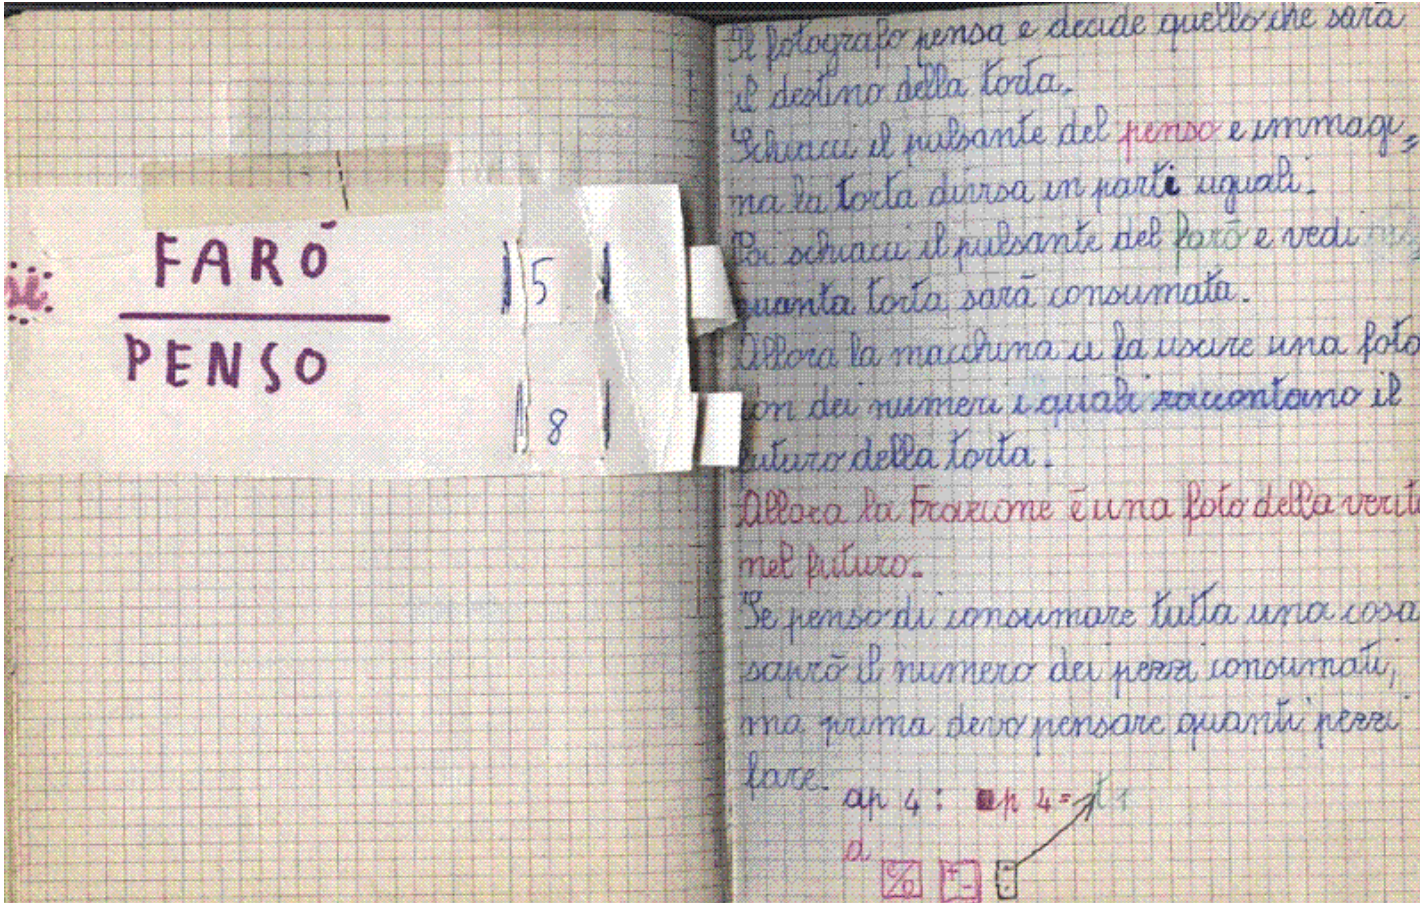 FARÒ
5
PENSO
8
Il fotografo pensa e decide quello che sarà
il destino della torta.
Schiacci il pulsante del penso e immagi=
na la torta divisa in parti uguali.
Poi schiacci il pulsante del farò e vedi
quanta torta sarà consumata.
Allora la macchina ci fa uscire una foto
con dei numeri i quali raccontano il
futuro della torta.
Allora la Frazione è una foto della verit
nel futuro.
Se penso di consumare tutta una cosa
saprò il numero dei pezzi consumati,
ma prima devo pensare quanti pezzi
fare.
ap 4 : ap 4 = t 1
a
% + -